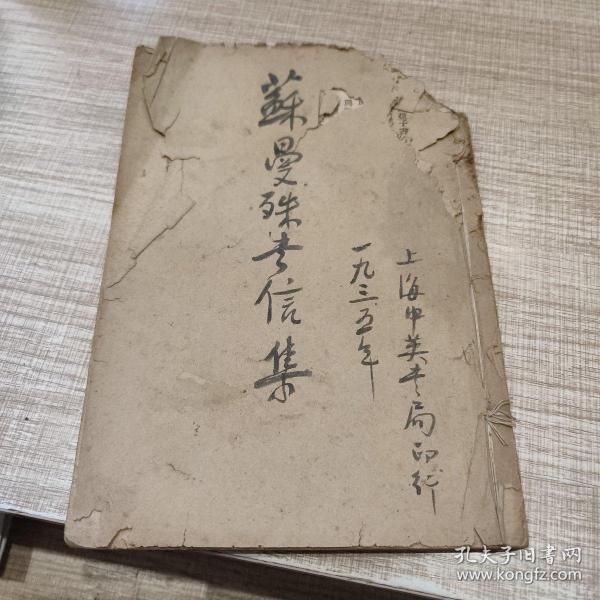 蘇曼殊书信集
上海中英书局印行
一九三五年
孔夫子旧书网
www.kongfz.com